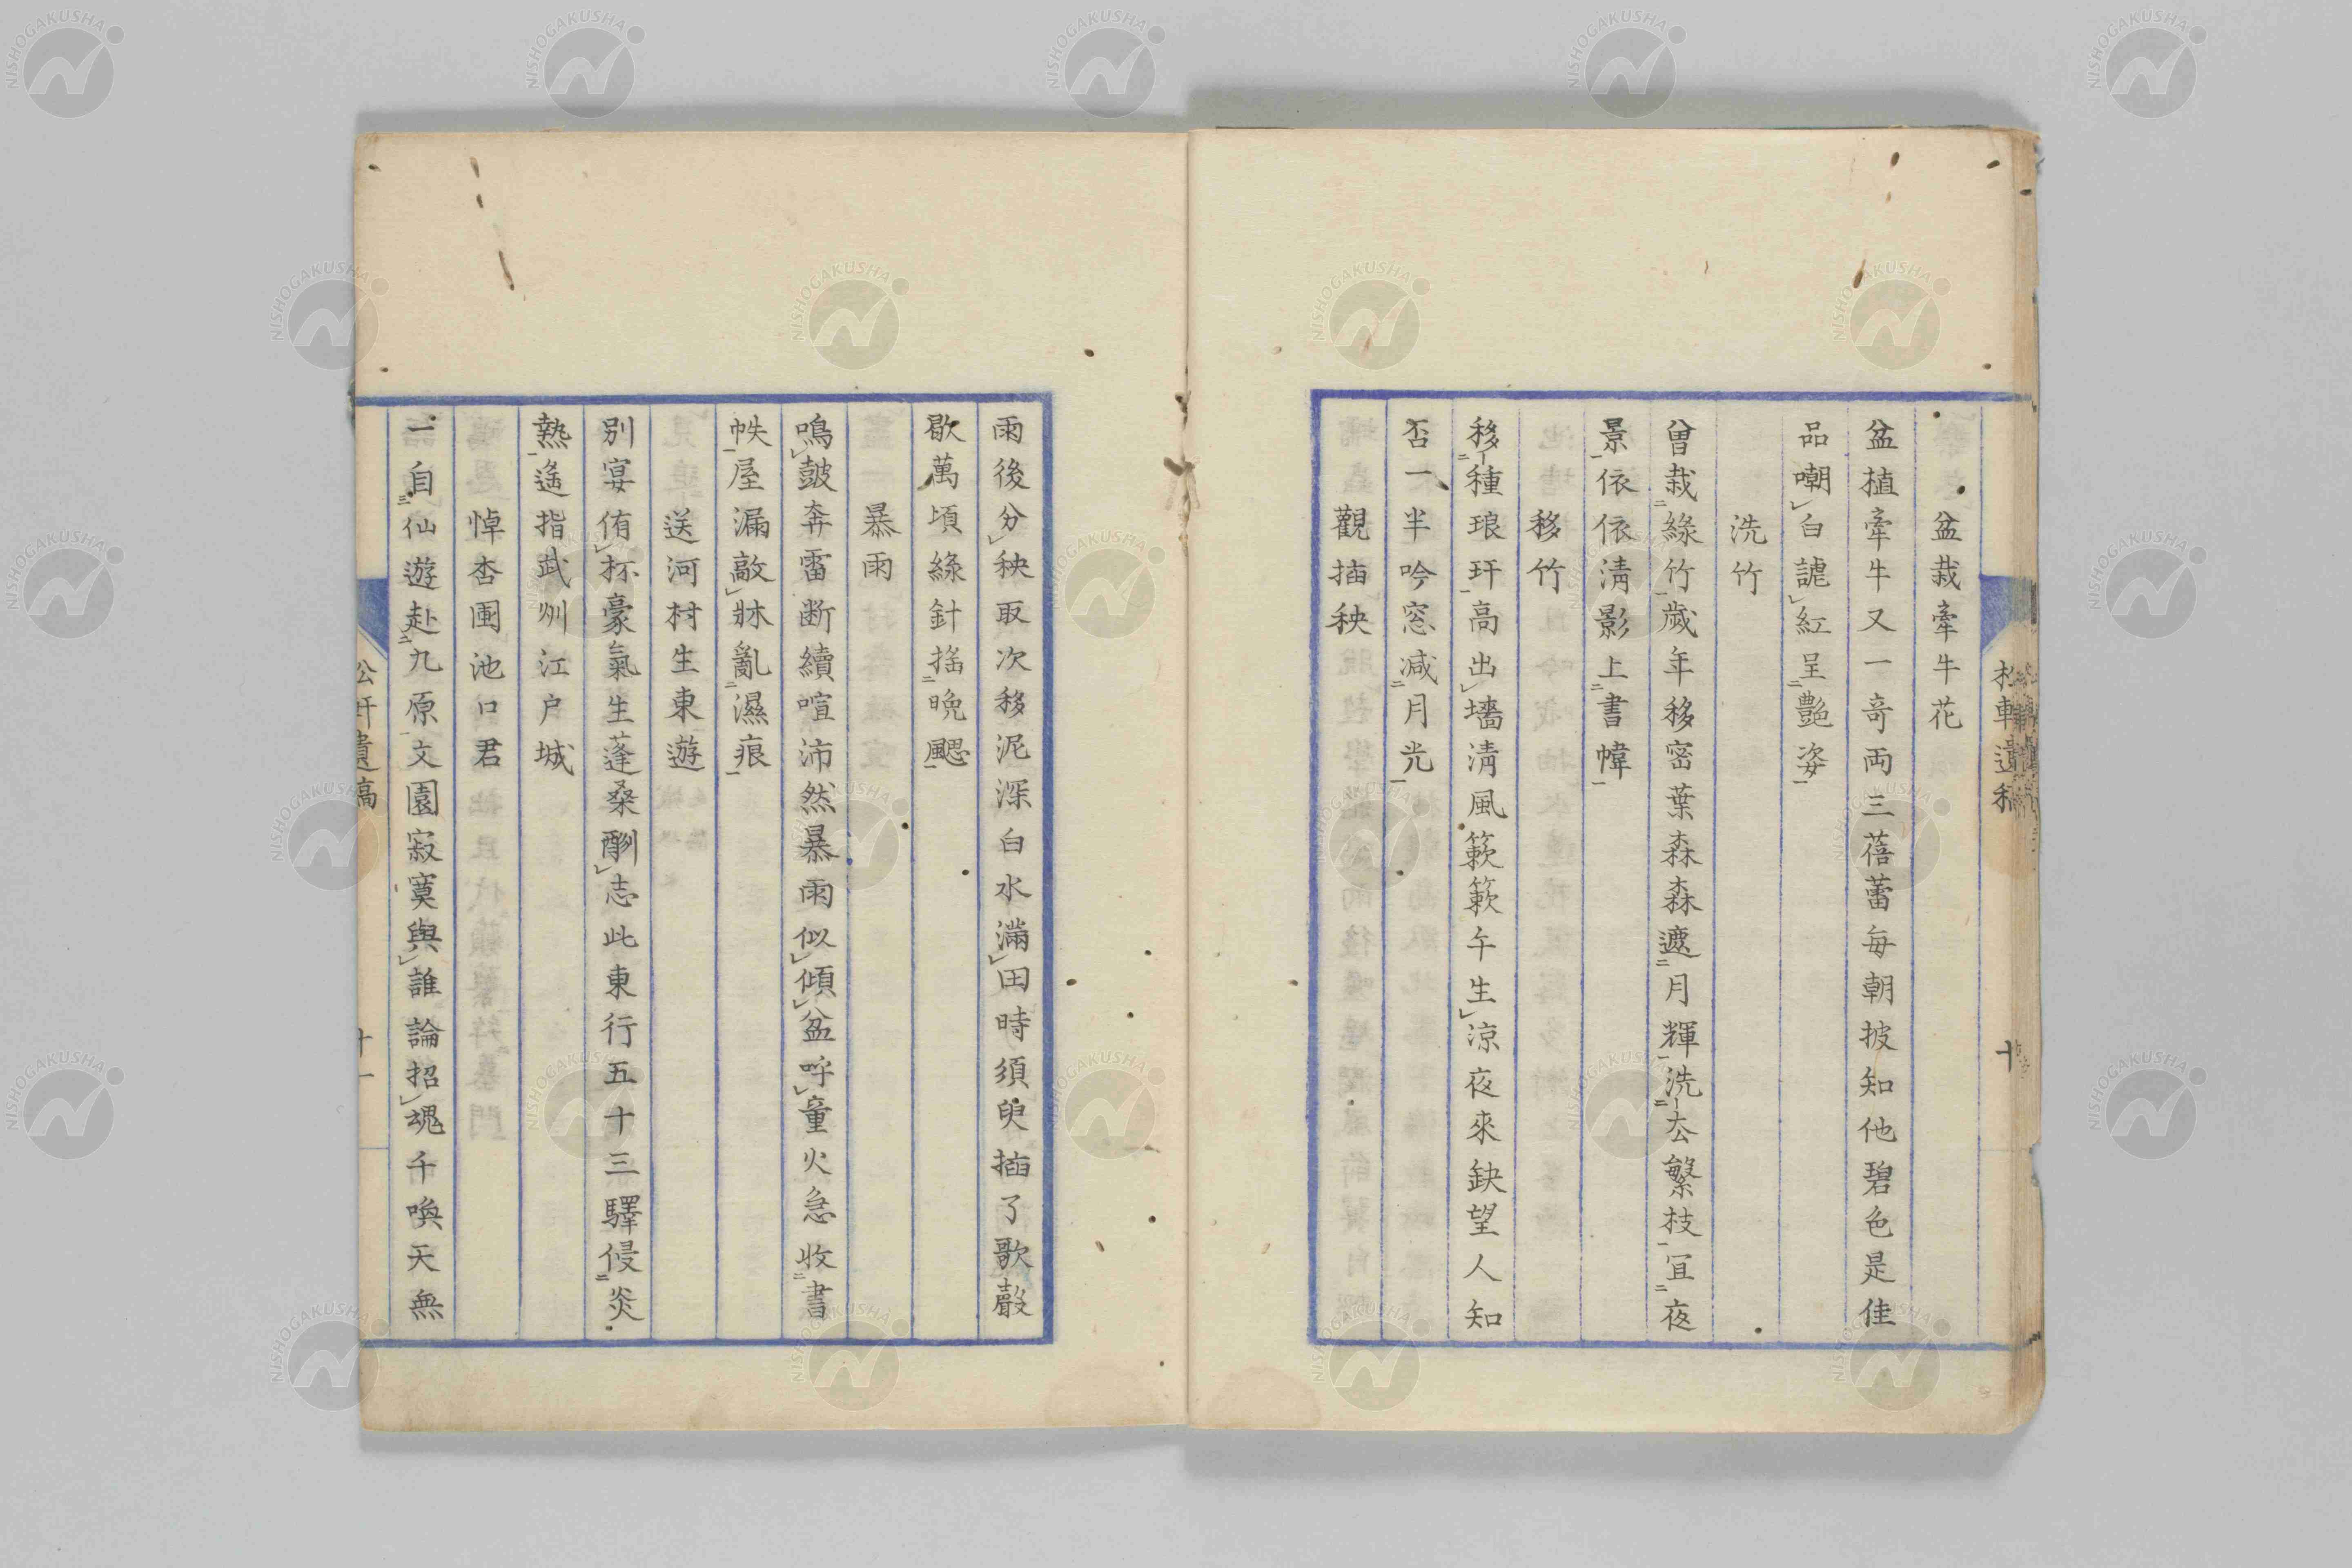 盆栽牽牛花
盆植牽牛又一奇両三蓓蕾毎朝披知他碧色是佳
品嘲白謔紅呈艶姿
洗竹
曽栽緑竹歳年移密葉森森遮月輝洗去繁枝宜夜
景依依清影上書幃
移竹
移種琅玕高出墻清風簌簌午生涼夜來缺望人知
否一半吟窓減月光
觀插秧
雨後分秧取次移泥深白水満田時須臾插了歌聲
歇萬頃緑針揺晩颸
暴雨
鳴皷奔雷断續喧沛然暴雨似傾盆呼童火急收書
帙屋漏敵牀亂濕痕
送河村生東遊
別宴侑杯豪氣生蓬桑酬志此東行五十三驛侵炎
熱遥指武州江戸城
悼杏園池口君
一自仙遊赴九原文園寂寞與誰論招魂千喚天無
遺稿
十一
NISHOGAKUSHA